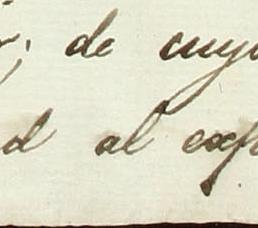 r, de cuyo
d al exp